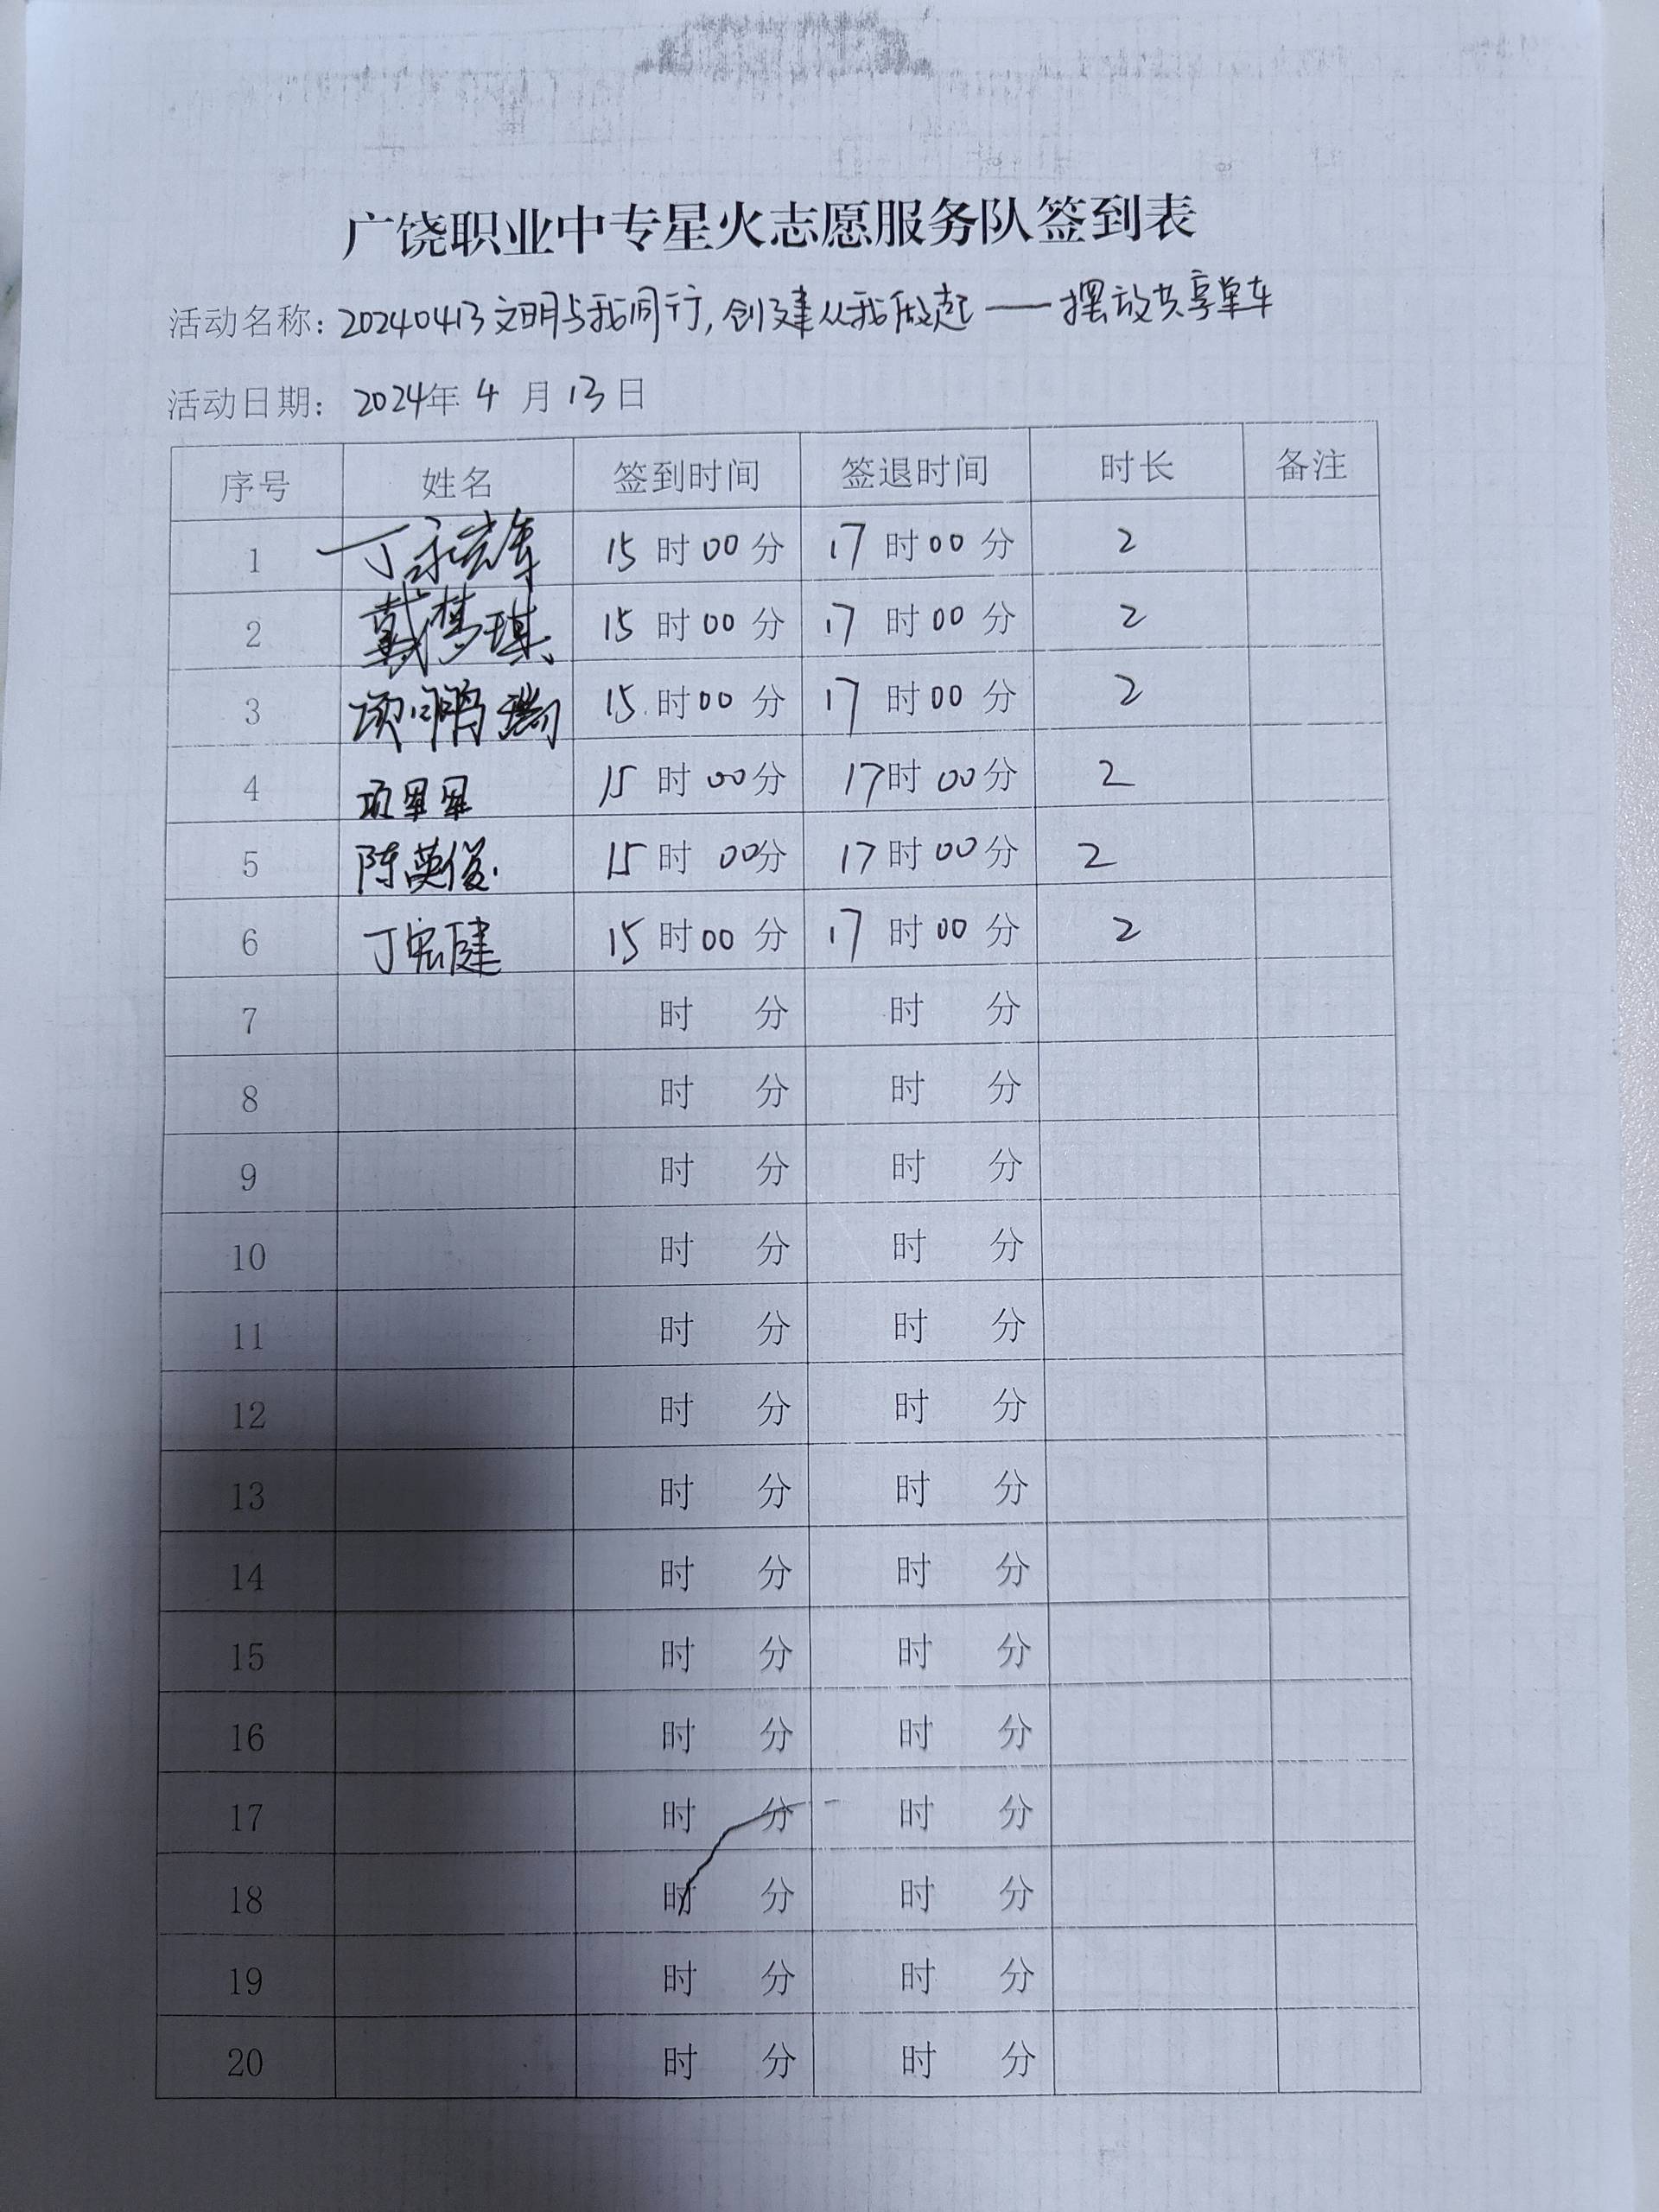 广饶职业中专星火志愿服务队签到表
活动名称：20240413文明与我同行,创建从我做起——摆放共享单车
活动日期：2024年4月13日
序号 姓名 签到时间 签退时间 时长 备注
1 丁 15时00分 17时00分 2
2 戴梦琪 15时00分 17时00分 2
3 项鹏瑞 15时00分 17时00分 2
4 项星星 15时00分 17时00分 2
5 陈英俊 15时00分 17时00分 2
6 丁宏健 15时00分 17时00分 2
7 时 分 时 分
8 时 分 时 分
9 时 分 时 分
10 时 分 时 分
11 时 分 时 分
12 时 分 时 分
13 时 分 时 分
14 时 分 时 分
15 时 分 时 分
16 时 分 时 分
17 时 分 时 分
18 时 分 时 分
19 时 分 时 分
20 时 分 时 分